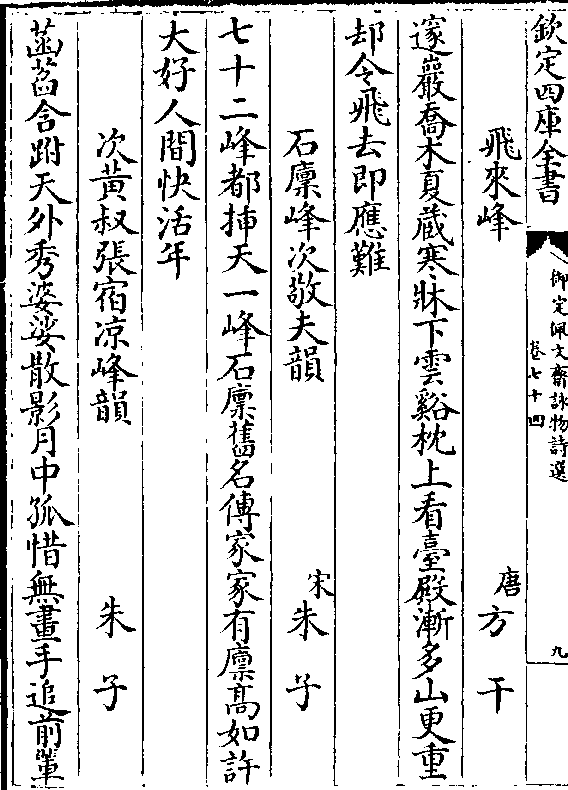 欽定四庫全書
御定佩文齋詠物詩選
卷七十四
九
飛來峰
唐方干
邃巖喬木夏藏寒牀下雲谿枕上看臺殿漸多山更重
却令飛去即應難
石廩峰次敬夫韻
宋朱子
七十二峰都揷天一峰石廩舊名傳家家有廩髙如許
大好人間快活年
次黃叔張宿凉峰韻
朱子
菡萏含跗天外秀婆娑散影月中孤惜無畫手追前輩